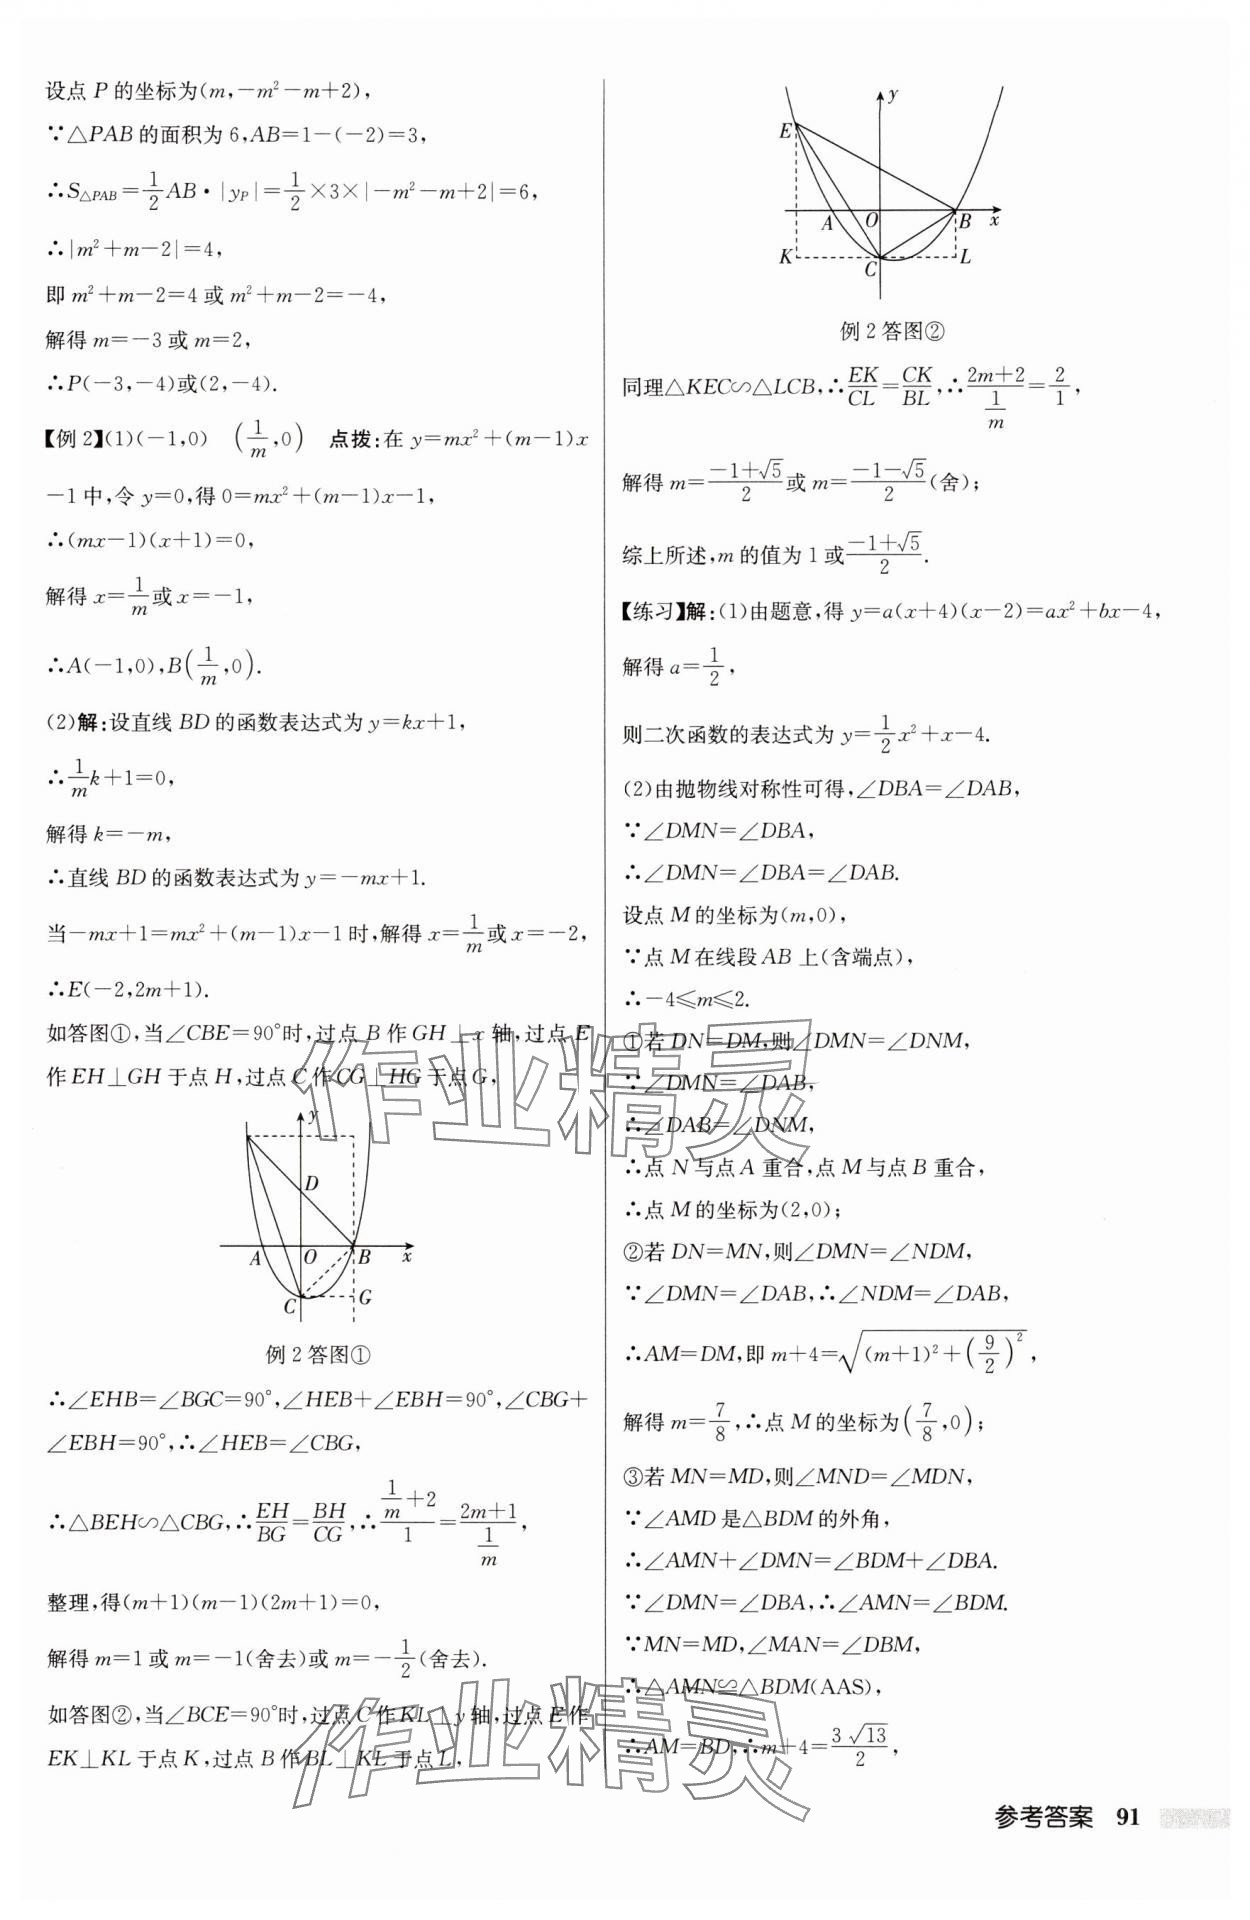 设点 P 的坐标为(m,-m²-m+2),
∵△PAB 的面积为 6,AB=1-(-2)=3,
∴S△PAB=1/2 AB·|yP|=1/2×3×|-m²-m+2|=6,
∴|m²+m-2|=4,
即 m²+m-2=4 或 m²+m-2=-4,
解得 m=-3 或 m=2,
∴P(-3,-4)或(2,-4).
【例 2】(1)(-1,0) (1/m,0) 点拨:在 y=mx²+(m-1)x
-1 中,令 y=0,得 0=mx²+(m-1)x-1,
∴(mx-1)(x+1)=0,
解得 x=1/m 或 x=-1,
∴A(-1,0),B(1/m,0).
(2)解:设直线 BD 的函数表达式为 y=kx+1,
∴1/m k+1=0,
解得 k=-m,
∴直线 BD 的函数表达式为 y=-mx+1.
当-mx+1=mx²+(m-1)x-1 时,解得 x=1/m 或 x=-2,
∴E(-2,2m+1).
如答图①,当∠CBE=90°时,过点 B 作 GH⊥x 轴,过点 E
作 EH⊥GH 于点 H,过点 C 作 CG⊥HG 于点 G,
y
D
A O B x
C G
例 2 答图①
∴∠EHB=∠BGC=90°,∠HEB+∠EBH=90°,∠CBG+
∠EBH=90°,∴∠HEB=∠CBG,
∴△BEH∽△CBG,∴EH/BG=BH/CG,∴(1/m+2)/1=(2m+1)/(1/m),
整理,得(m+1)(m-1)(2m+1)=0,
解得 m=1 或 m=-1(舍去)或 m=-1/2(舍去).
如答图②,当∠BCE=90°时,过点 C 作 KL⊥y 轴,过点 E 作
EK⊥KL 于点 K,过点 B 作 BL⊥KL 于点 L,
y
E
A O B x
K C L
例 2 答图②
同理△KEC∽△LCB,∴EK/CL=CK/BL,∴(2m+2)/(1/m)=2/1,
解得 m=(-1+√5)/2 或 m=(-1-√5)/2(舍);
综上所述,m 的值为 1 或(-1+√5)/2.
【练习】解:(1)由题意,得 y=a(x+4)(x-2)=ax²+bx-4,
解得 a=1/2,
则二次函数的表达式为 y=1/2x²+x-4.
(2)由抛物线对称性可得,∠DBA=∠DAB,
∵∠DMN=∠DBA,
∴∠DMN=∠DBA=∠DAB.
设点 M 的坐标为(m,0),
∵点 M 在线段 AB 上(含端点),
∴-4≤m≤2.
①若 DN=DM,则∠DMN=∠DNM,
∵∠DMN=∠DAB,
∴∠DAB=∠DNM,
∴点 N 与点 A 重合,点 M 与点 B 重合,
∴点 M 的坐标为(2,0);
②若 DN=MN,则∠DMN=∠NDM,
∵∠DMN=∠DAB,∴∠NDM=∠DAB,
∴AM=DM,即 m+4=√((m+1)²+(9/2)²),
解得 m=7/8,∴点 M 的坐标为(7/8,0);
③若 MN=MD,则∠MND=∠MDN,
∵∠AMD 是△BDM 的外角,
∴∠AMN+∠DMN=∠BDM+∠DBA.
∵∠DMN=∠DBA,∴∠AMN=∠BDM.
∵MN=MD,∠MAN=∠DBM,
∴△AMN≌△BDM(AAS),
∴AM=BD,∴m+4=3√13/2,
参考答案 91
作业精灵
作业精灵